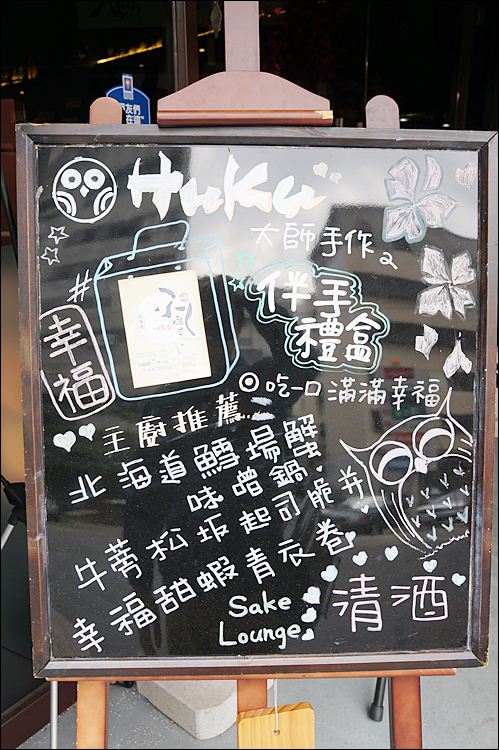 Huku
大師手作
伴手
禮盒
#
幸福
吃一口 滿滿幸福
主廚推薦
北海道鱈場蟹
味噌鍋
牛蒡松坂起司脆片
幸福甜蝦青衣卷
Sake
Lounge
清酒
友們
在這